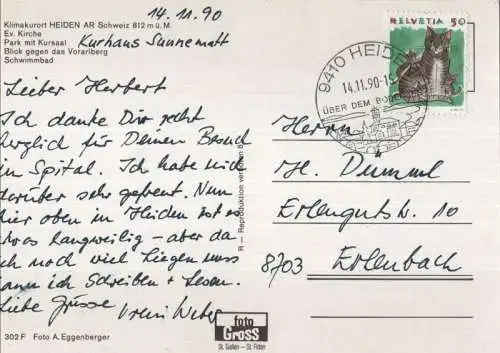 14.11.90
Klimakurort HEIDEN AR Schweiz 812 m ü. M.
Ev. Kirche
Park mit Kursaal
Kurhaus Sunnematt
Blick gegen das Vorarlberg
Schwimmbad
Lieber Herbert
Ich danke Dir recht
herzlich für Deinen Besuch
im Spital. Ich habe mich
darüber sehr gefreut. Nun
hier oben in Heiden ist es
etwas langweilig - aber da
ich noch viel liegen muss
kann ich Schreiben + Lesen.
Liebe Grüsse
Vreni Weber
302 F Foto A. Eggenberger
R — Reproduktion verboten
foto
Gross
St. Gallen – St. Fiden
HELVETIA 50
9410 HEIDEN
14.11.90-15
ÜBER DEM BODENSEE
Herrn
H. Dummel
Erlengutstr. 10
8703 Erlenbach